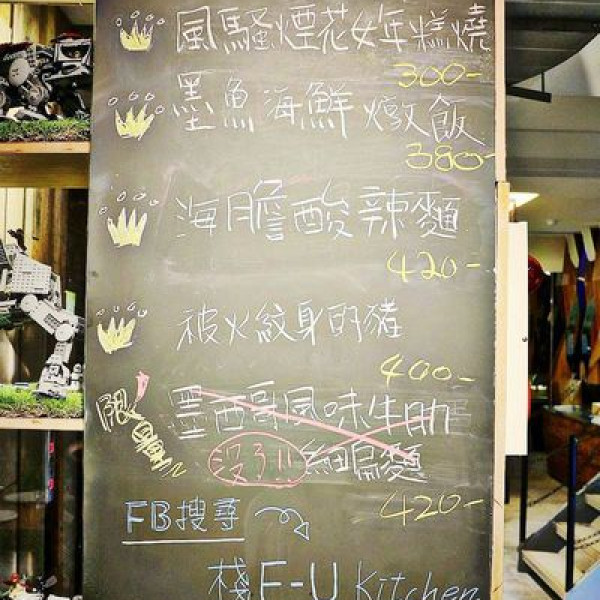 風騷煙花女年糕燒
300-
墨魚海鮮燉飯
380-
海膽酸辣麵
420-
被火紋身的豬
400-
限量!
墨西哥風味牛肋
沒了!! 細扁麵
420-
FB搜尋
棧 E-U Kitchen